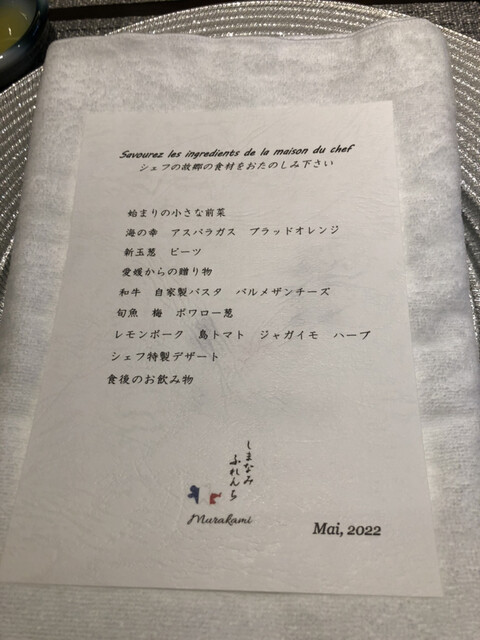 Savourez les ingredients de la maison du chef
シェフの故郷の食材をおたのしみ下さい
始まりの小さな前菜
海の幸 アスパラガス ブラッドオレンジ
新玉葱 ビーツ
愛媛からの贈り物
和牛 自家製パスタ パルメザンチーズ
旬魚 梅 ポワロー葱
レモンポーク 島トマト ジャガイモ ハーブ
シェフ特製デザート
食後のお飲み物
しまなみ
ふれんち
Murakami
Mai, 2022